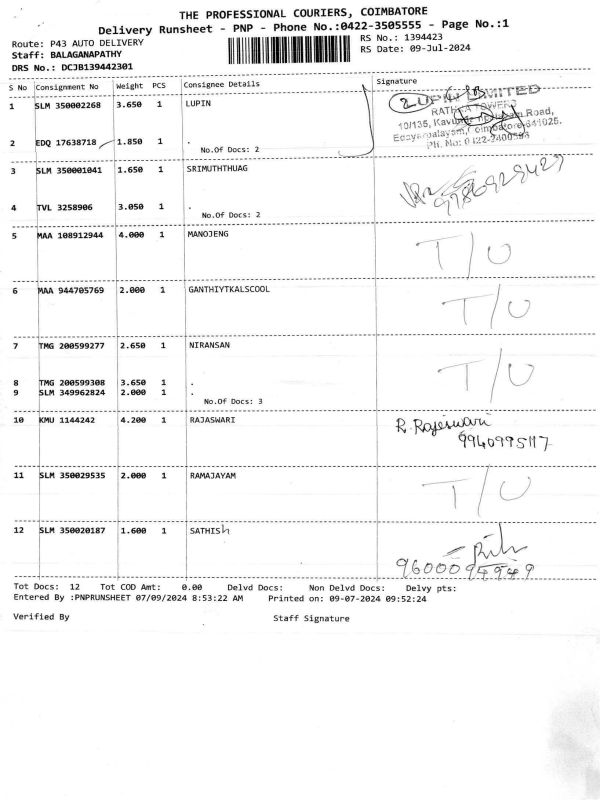 THE PROFESSIONAL COURIERS, COIMBATORE
Delivery Runsheet - PNP - Phone No.:0422-3505555 - Page No.:1
Route: P43 AUTO DELIVERY RS No.: 1394423
Staff: BALAGANAPATHY RS Date: 09-Jul-2024
DRS No.: DCJB139442301
S No Consignment No Weight PCS Consignee Details Signature
1 SLM 350002268 3.650 1 LUPIN
LUPIN LIMITED
RATHNA TOWERS
10/135, Road,
Coimbatore-641025.
PH. No: 0422-2400593
2 EDQ 17638718 1.850 1 .
No.Of Docs: 2
3 SLM 350001041 1.650 1 SRIMUTHTHUAG
4 TVL 3258906 3.050 1 .
No.Of Docs: 2
5 MAA 108912944 4.000 1 MANOJENG T/U
6 MAA 944705769 2.000 1 GANTHIYTKALSCOOL T/U
7 TMG 200599277 2.650 1 NIRANSAN T/U
8 TMG 200599308 3.650 1 .
9 SLM 349962824 2.000 1 .
No.Of Docs: 3
10 KMU 1144242 4.200 1 RAJASWARI R. Rajeswari
9940995117
11 SLM 350029535 2.000 1 RAMAJAYAM T/U
12 SLM 350020187 1.600 1 SATHISh
9600094949
Tot Docs: 12 Tot COD Amt: 0.00 Delvd Docs: Non Delvd Docs: Delvy pts:
Entered By :PNPRUNSHEET 07/09/2024 8:53:22 AM Printed on: 09-07-2024 09:52:24
Verified By Staff Signature